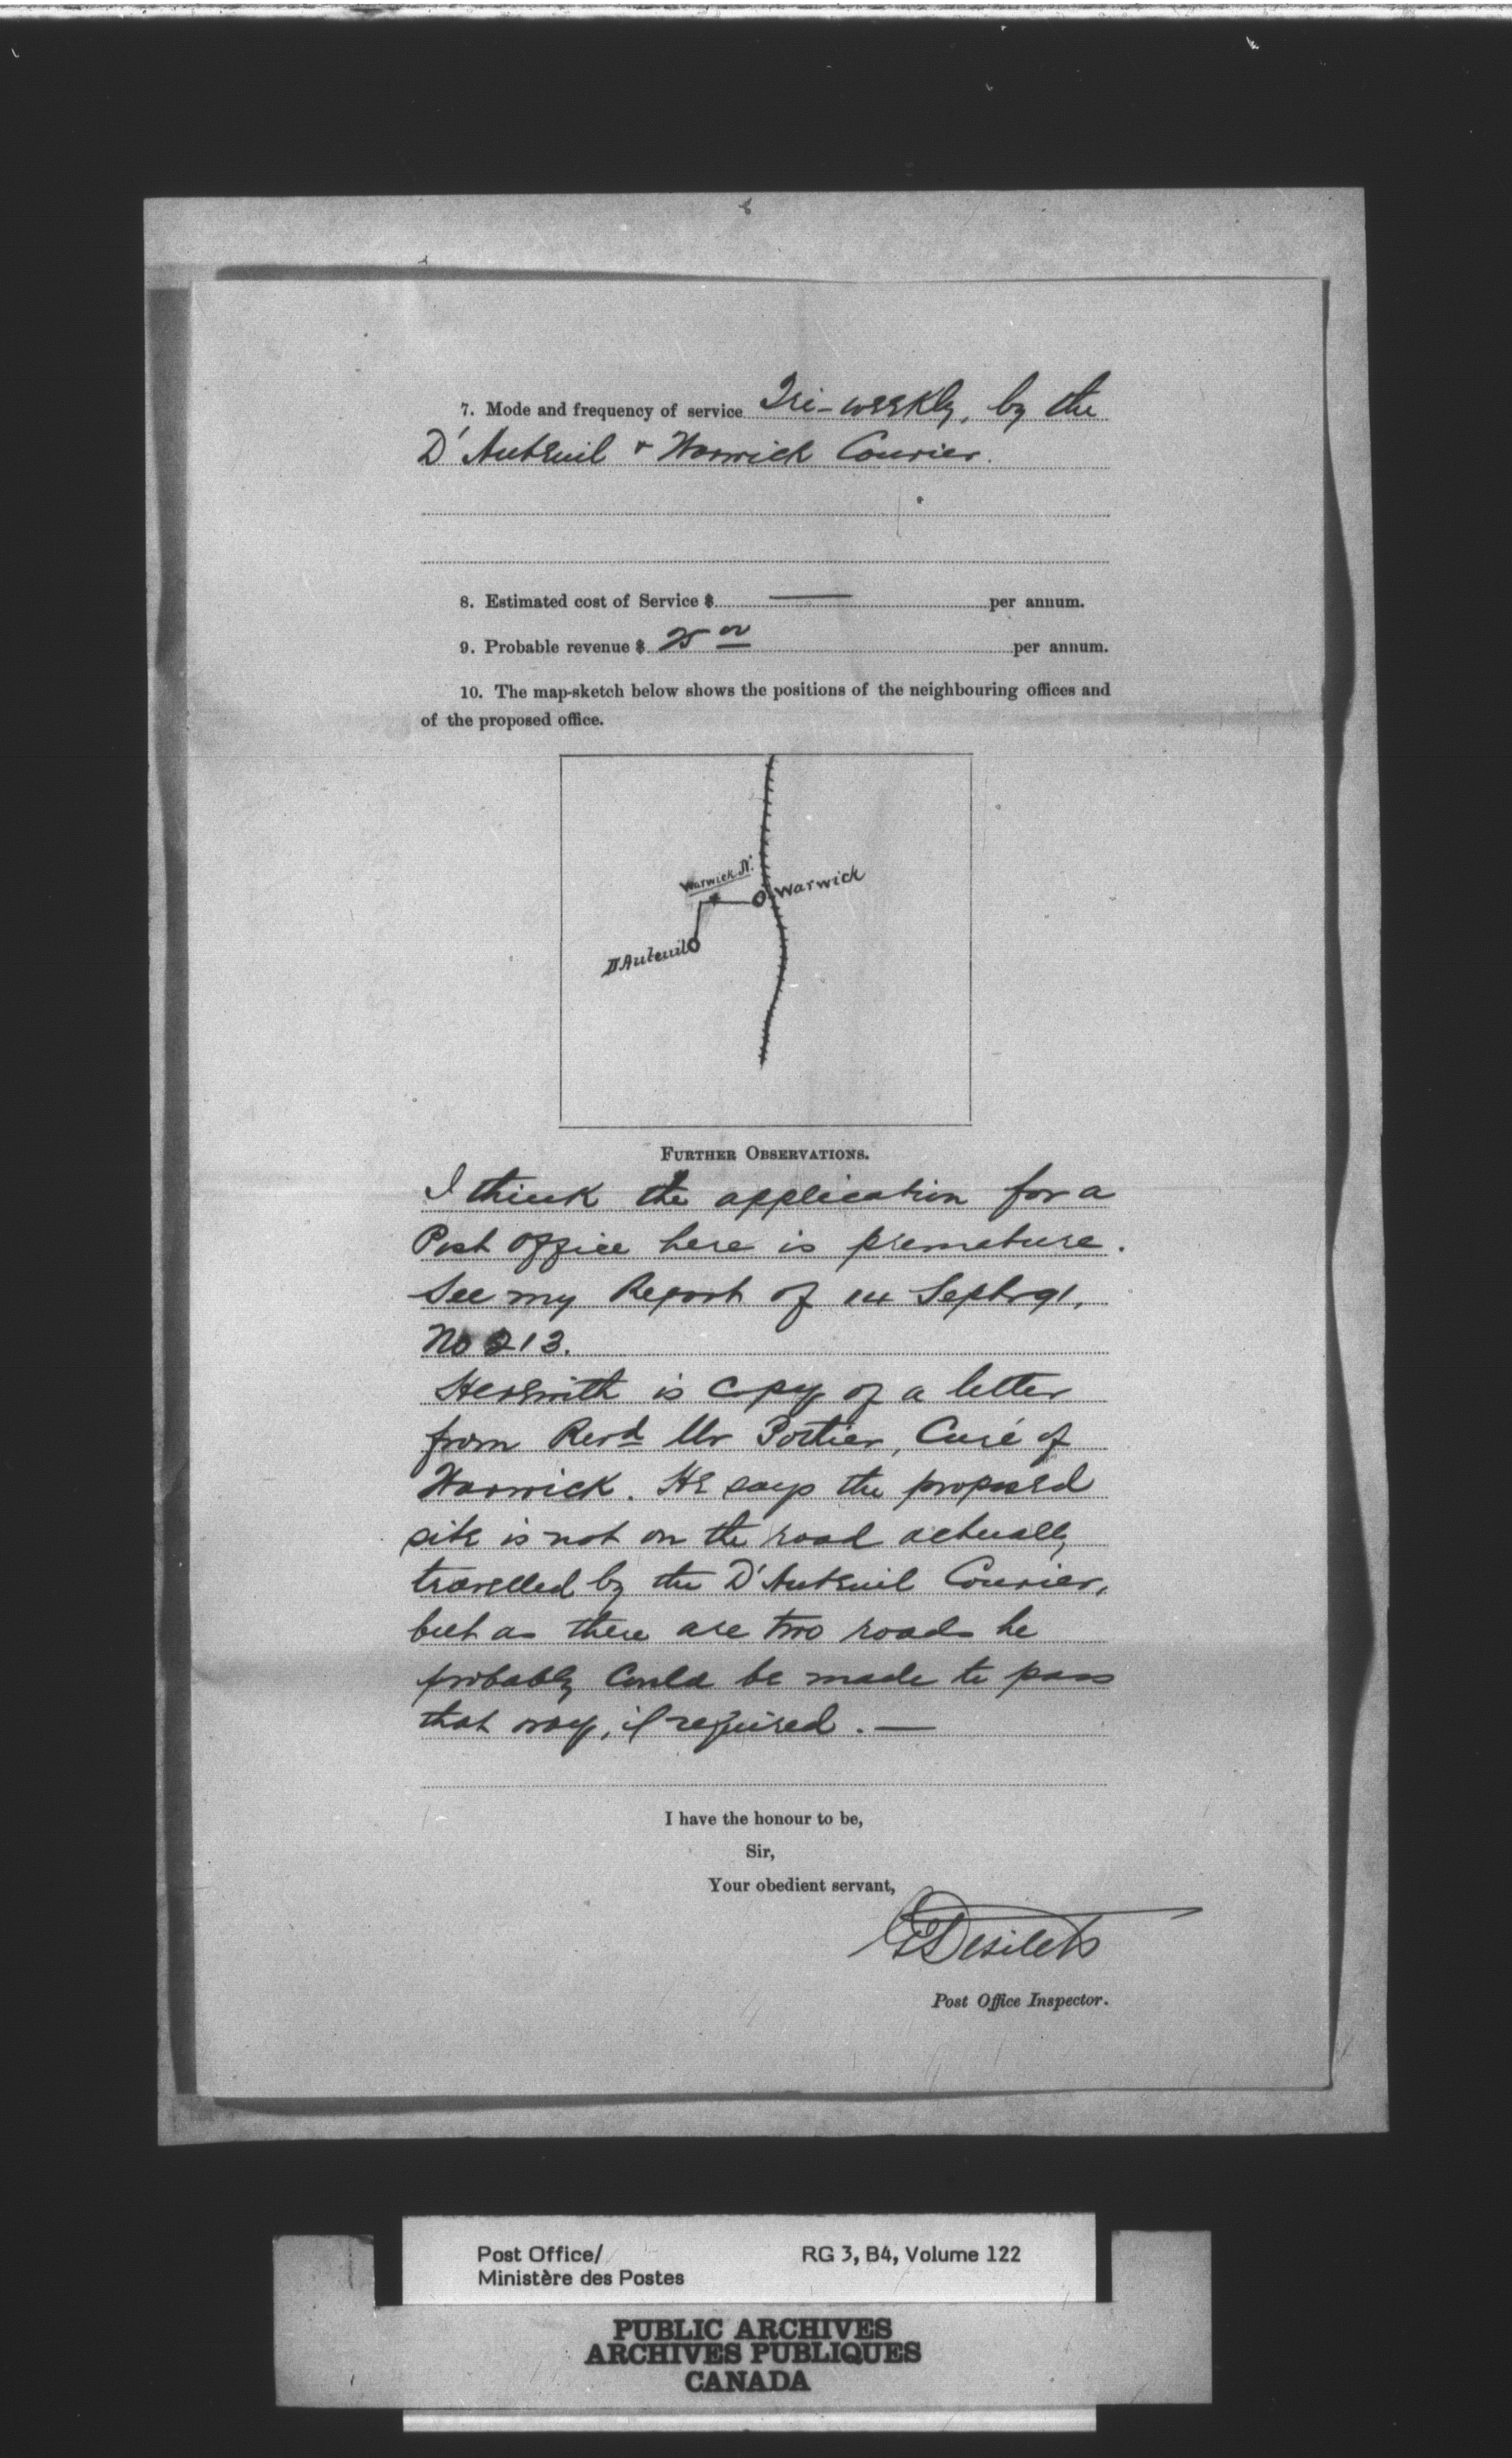 7. Mode and frequency of service Tri-weekly, by the
D'Auteuil & Warwick Courier.
8. Estimated cost of Service $ — per annum.
9. Probable revenue $ 25 00 per annum.
10. The map-sketch below shows the positions of the neighbouring offices and
of the proposed office.
Warwick N.
Warwick
D'Auteuil
FURTHER OBSERVATIONS.
I think the application for a
Post Office here is premature.
See my Report of 14 Septr 91,
No 213.
Herewith is copy of a letter
from Revd Mr Portier, Curé of
Warwick. He says the proposed
site is not on the road actually
travelled by the D'Auteuil Courier,
but as there are two roads he
probably could be made to pass
that way, if required. —
I have the honour to be,
Sir,
Your obedient servant,
Desilets
Post Office Inspector.
Post Office/ RG 3, B4, Volume 122
Ministère des Postes
PUBLIC ARCHIVES
ARCHIVES PUBLIQUES
CANADA